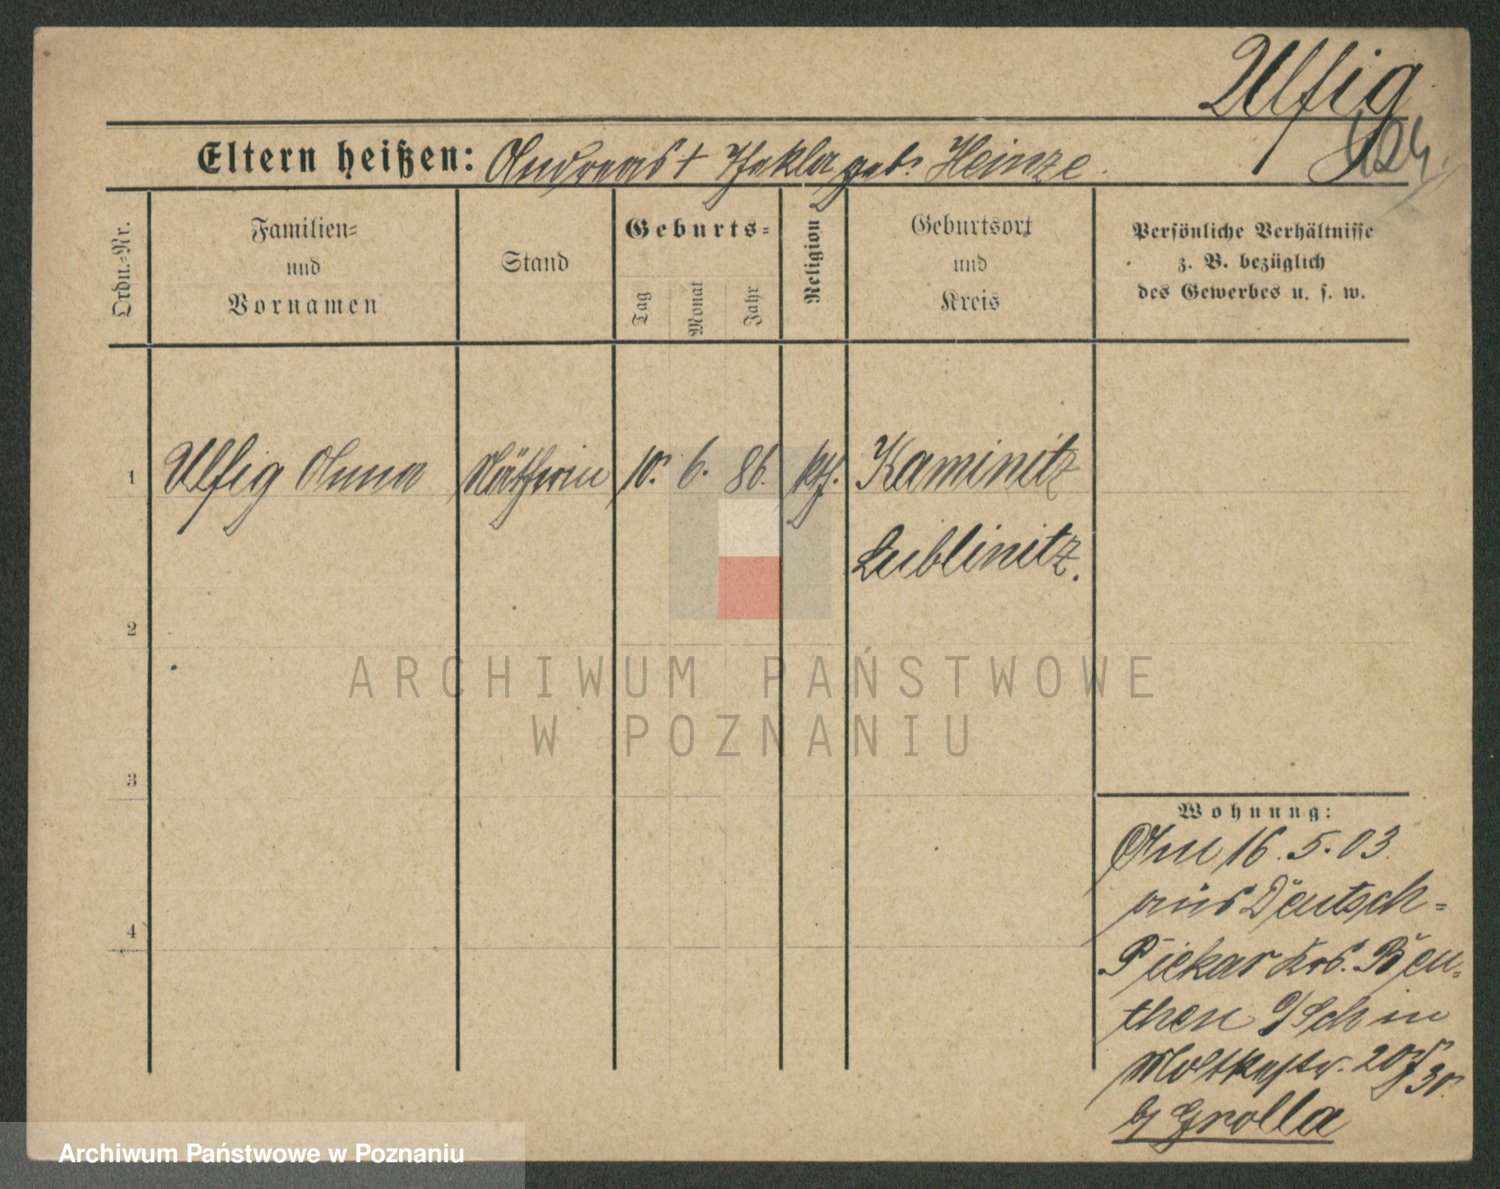 Ulfig
Eltern heißen: Andreas + Thekla geb. Heinze.
Ordn.-Nr.
Familien-
und
Vornamen
Stand
Geburts-
Tag
Monat
Jahr
Religion
Geburtsort
und
Kreis
Persönliche Verhältnisse
z. B. bezüglich
des Gewerbes u. s. w.
1 Ulfig Anna Nätherin 10. 6. 86. kth. Kaminitz
Lublinitz.
2
ARCHIWUM PAŃSTWOWE
W POZNANIU
3
Wohnung:
Am 16. 5. 03
aus Deutsch-
4
Piekar Krs. Beu-
then O/Sch in
Moltkestr. 20
b/ Grolla
Archiwum Państwowe w Poznaniu